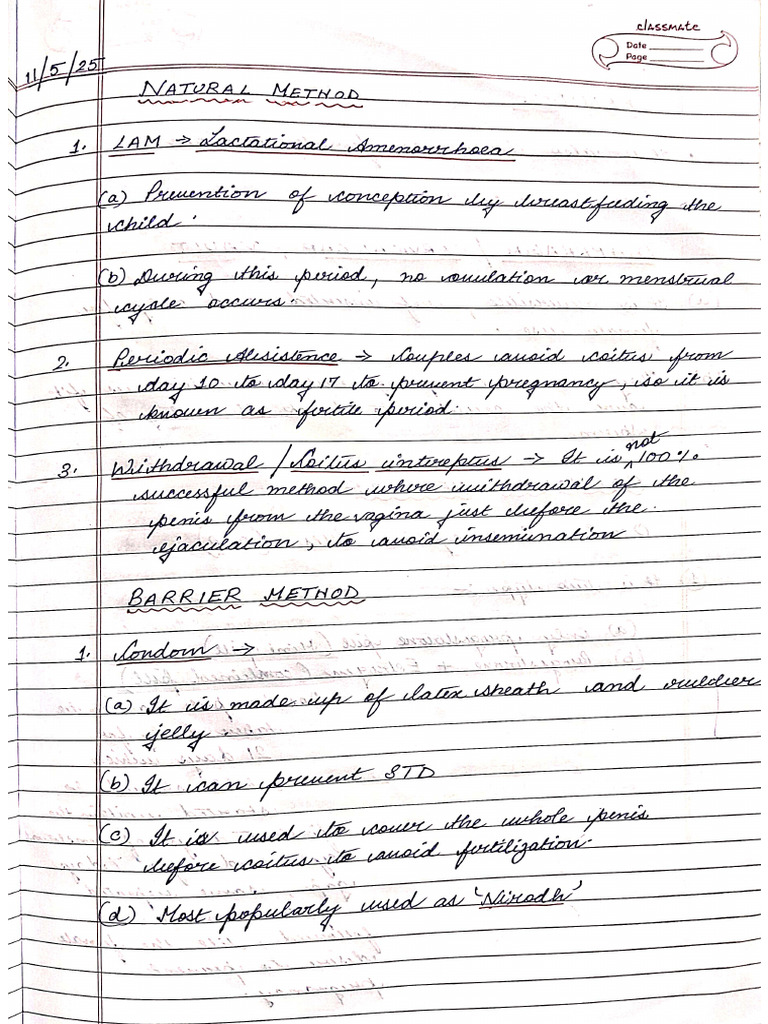 classmate
Date
Page
11/5/25
NATURAL METHOD
1. LAM → Lactational Amenorrhoea
(a) Prevention of conception by breastfeeding the
child.
(b) During this period, no ovulation or menstrual
cycle occurs.
2. Periodic Abisistence → Couples avoid coitus from
day 10 to day 17 to prevent pregnancy, so it is
known as fertile period.
3. Withdrawal / Coitus intereptus → It is not 100%
successful method where withdrawal of the
penis from the vagina just before the
ejaculation, to avoid insemination
BARRIER METHOD
1. Condom →
(a) It is made up of latex sheath and
jelly
(b) It can prevent STD
(c) It is used to cover the whole penis
before coitus to avoid fertilization.
(d) Most popularly used as 'Nirodh'